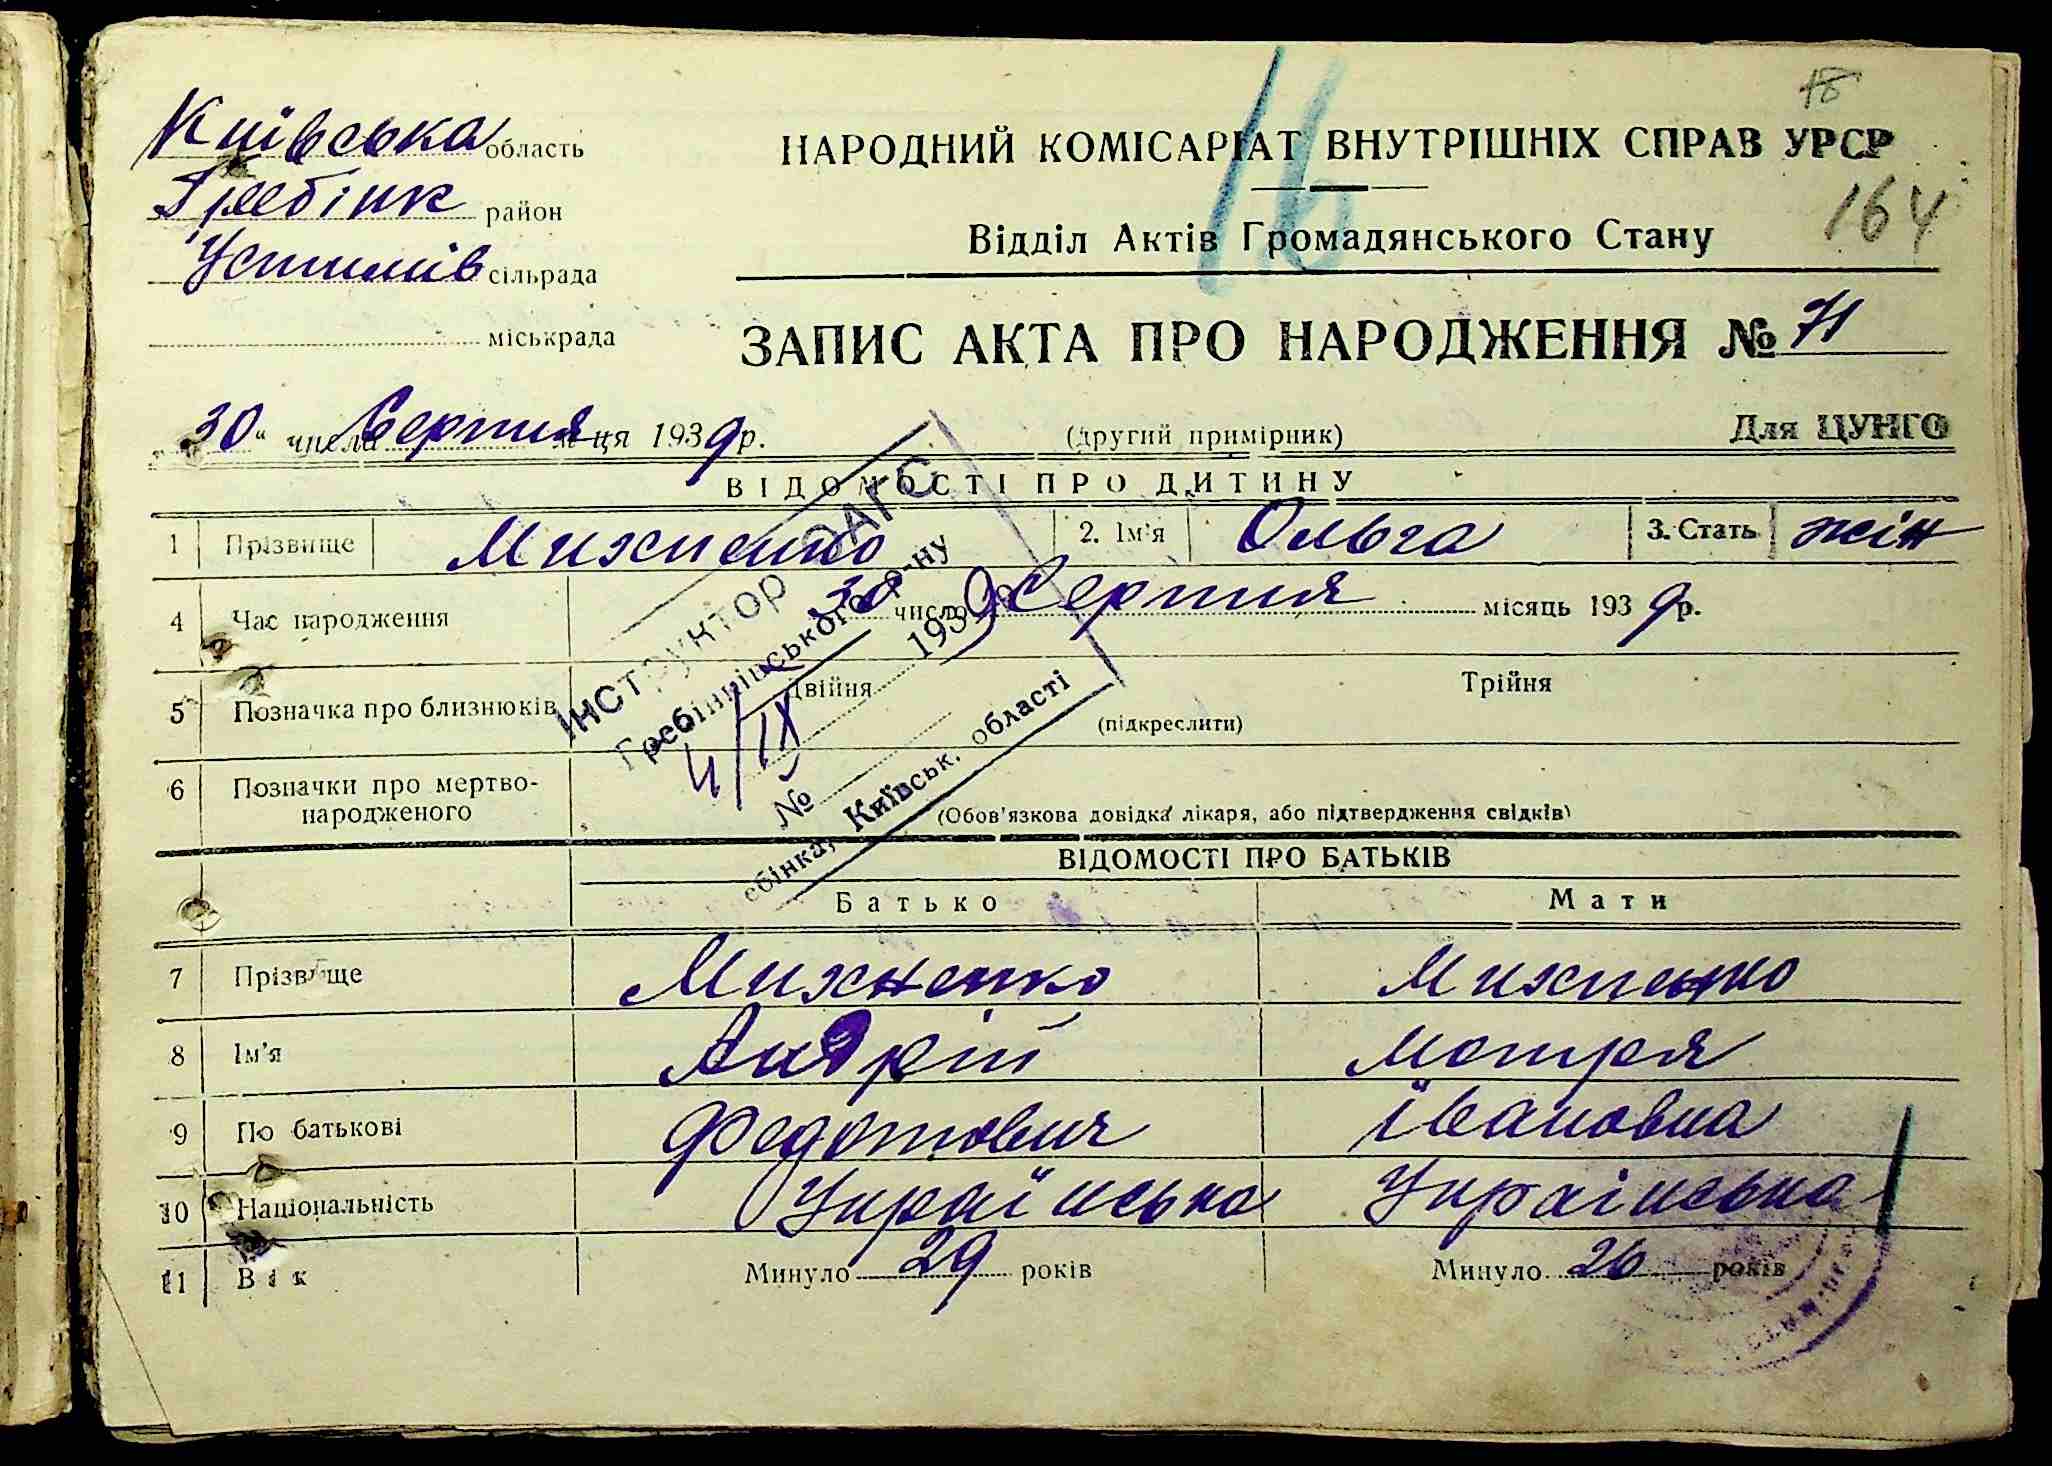 Київська область
Гребінк район
Устимів сільрада
міськрада
18
НАРОДНИЙ КОМІСАРІАТ ВНУТРІШНІХ СПРАВ УРСР
16
164
Відділ Актів Громадянського Стану
ЗАПИС АКТА ПРО НАРОДЖЕННЯ № 71
"30" числа Серпня м-ця 1939 р.
(другий примірник)
Для ЦУНГО
ВІДОМОСТІ ПРО ДИТИНУ
1 Прізвище Михненко 2. Ім'я Ольга 3. Стать жін
4 Час народження 30 число Серпня місяць 1939 р.
5 Позначка про близнюків Двійня Трійня
(підкреслити)
6 Позначки про мертво-
народженого
(Обов'язкова довідка лікаря, або підтвердження свідків)
ІНСТРУКТОР ОАГС
Гребінківського р-ну
4/IX 1939
№
ебінка, Київськ. області
ВІДОМОСТІ ПРО БАТЬКІВ
Батько Мати
7 Прізвище Михненко Михненко
8 Ім'я Андрій Мотря
9 По батькові Федотович Івановна
10 Національність Українська Українська
11 Вік Минуло 29 років Минуло 26 років